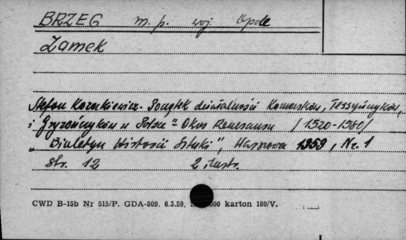 BRZEG m. p. woj. Opole
Zamek
Stefan Kozakiewicz - Początek działalności Komasków, Tessyńczyków,
i Gryzończyków w Polsce - Okres Renesansu /1520-1580/
„Biuletyn Historii Sztuki", Warszawa 1959, Nr. 1
str. 12 2 ilustr.
CWD B-15b Nr 515/P. GDA-809. 6.3.59. 000 karton 180/V.